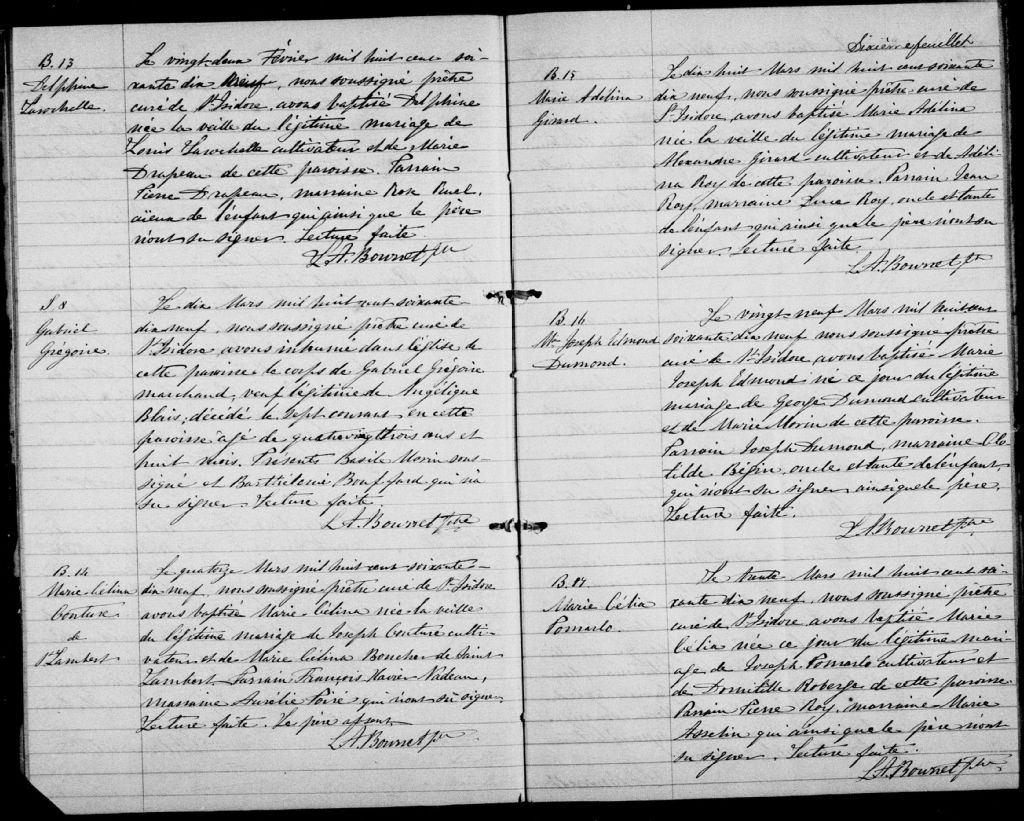 B. 13
Delphine
Larochelle.
Le vingt-deux Février mil huit cent soi-
xante dix neuf, nous soussigné prêtre
curé de St Isidore, avons baptisé Delphine
née la veille du légitime mariage de
Louis Larochelle cultivateur et de Marie
Drapeau de cette paroisse. Parrain
Pierre Drapeau, marraine Rose
aïeux de l'enfant qui ainsi que le père
n'ont su signer. Lecture faite.
L A. Bournet ptre
S 8
Gabriel
Grégoire.
Le dix Mars mil huit cent soixante-
dix neuf, nous soussigné prêtre curé de
St Isidore, avons inhumé dans l'église de
cette paroisse le corps de Gabriel Grégoire
marchand, veuf légitime de Angélique
Blais, décédé le sept courant en cette
paroisse âgé de quatrevingt trois ans et
huit mois. Présents Basile Morin sous-
signé et Barthélemi Bouffard qui n'a
su signer. Lecture faite.
L A. Bournet ptre
B. 14
Marie Célina
Couture
de
St Lambert
Le quatorze Mars mil huit cent soixante-
dix neuf, nous soussigné prêtre curé de St Isidore
avons baptisé Marie Célina née la veille
du légitime mariage de Joseph Couture culti-
vateur et de Marie Célina Boucher de Saint
Lambert. Parrain François Xavier Nadeau,
marraine Aurélie Poiré qui n'ont su signer
Lecture faite. Le père absent.
L A. Bournet ptre
Sixième feuillet
B. 15
Marie Adélina
Girard.
Le dix huit Mars mil huit cent soixante
dix neuf, nous soussigné prêtre curé de
St Isidore, avons baptisé Marie Adélina
née la veille du légitime mariage de
Alexandre Girard cultivateur et de Adéli-
na Roy de cette paroisse. Parrain Jean
Roy, marraine Luce Roy, oncle et tante
de l'enfant qui ainsi que le père n'ont su
signer. Lecture faite
L A. Bournet ptre
B. 16
Mie Joseph Edmond
Dumond.
Le vingt-neuf Mars mil huit cent
soixante dix neuf nous soussigné prêtre
curé de St Isidore, avons baptisé Marie
Joseph Edmond né ce jour du légitime
mariage de George Dumond cultivateur
et de Marie Morin de cette paroisse.
Parrain Joseph Dumond, marraine Clo-
tilde Bégin, oncle et tante de l'enfant,
qui n'ont su signer ainsi que le père.
Lecture faite.
L A. Bournet ptre
B. 17.
Marie Célia
Pomarlo.
Le trente Mars mil huit cent soi-
xante dix neuf, nous soussigné prêtre
curé de St Isidore avons baptisé Marie
Célia née ce jour du légitime mari-
age de Joseph Pomarlo cultivateur et
de Domitille Roberge de cette paroisse.
Parrain Pierre Roy, marraine Marie
Asselin qui ainsi que le père n'ont
su signer. Lecture faite.
L A. Bournet ptre